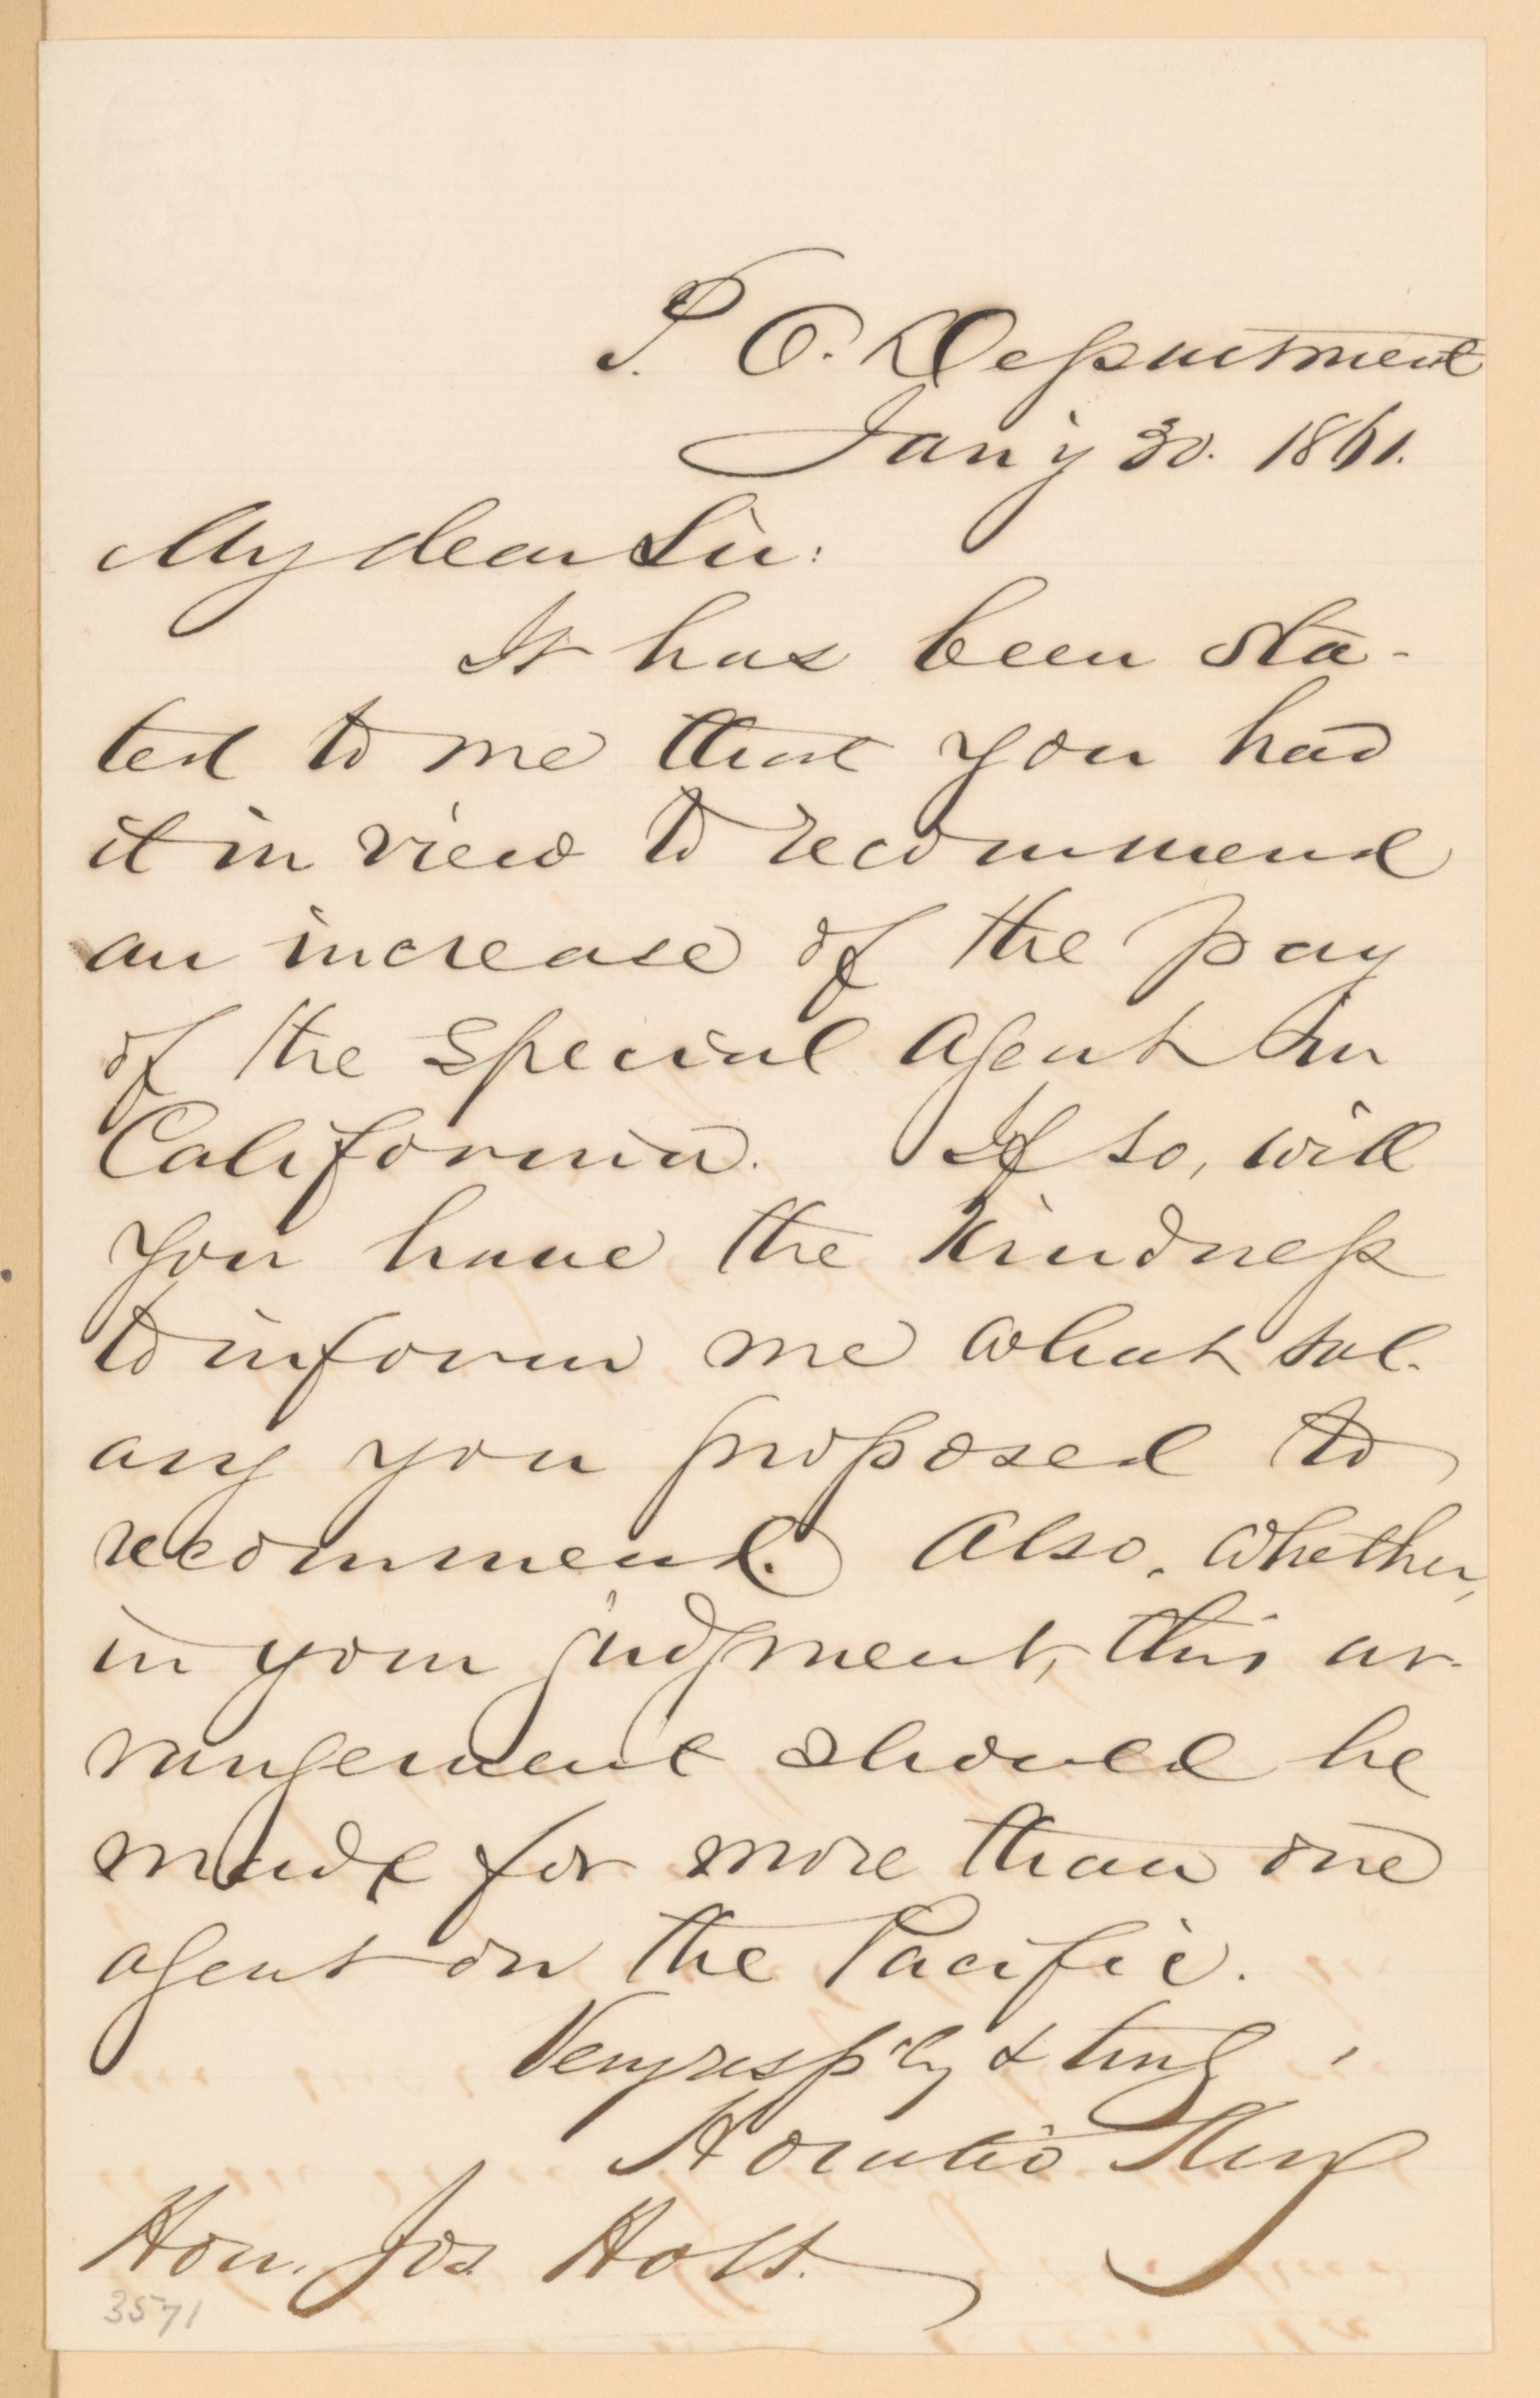 P. O. Department
Jan'y 30. 1861.
My dear Sir:
It has been sta-
ted to me that you had
it in view to recommend
an increase of the pay
of the special agent in
California. If so, will
you have the kindness
to inform me what sal-
ary you proposed to
recommend. Also, whether,
in your judgment, this ar-
rangement should be
made for more than one
agent on the Pacific.
Very resp'ly & truly
Horatio King
Hon. Jos. Holt.
3571